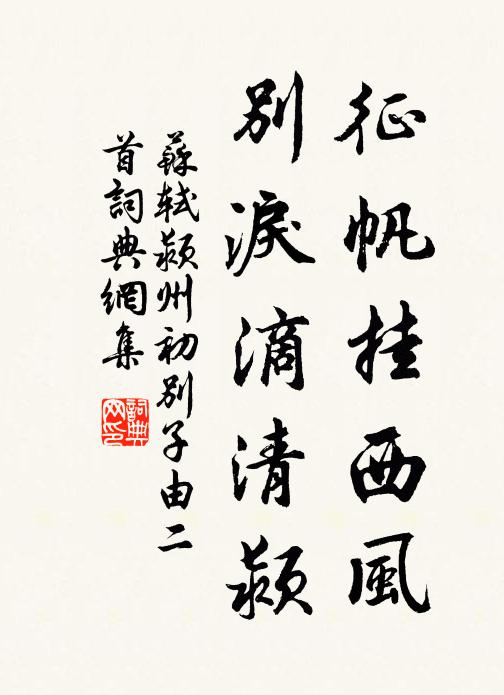 征帆挂西風
別淚滴清潁
蘇軾潁州初別子由二
首詞典網集
詞典網印